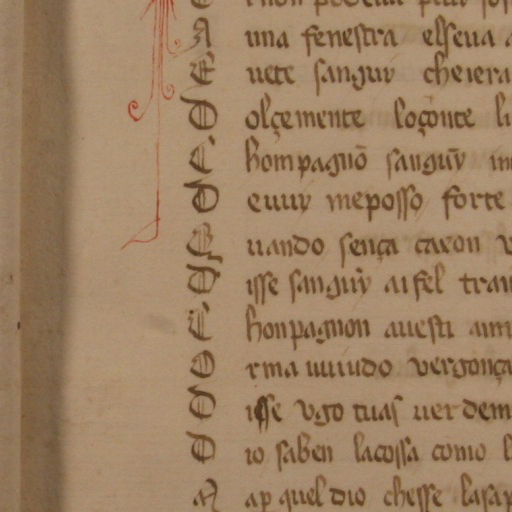 A una fenestra elseua
E uete sanguȳ cheiera
D olçemente loçonte li
C hompagnō sanguȳ in
D euuy meposso forte
Q uando sença caxon
D isse sanguȳ aifel trai
C honpagnon auesti
O rma uiuudo vergonça
D isse vgo tuas uer dem
D io saben lacossa como
M a per quel dio chesse lasap